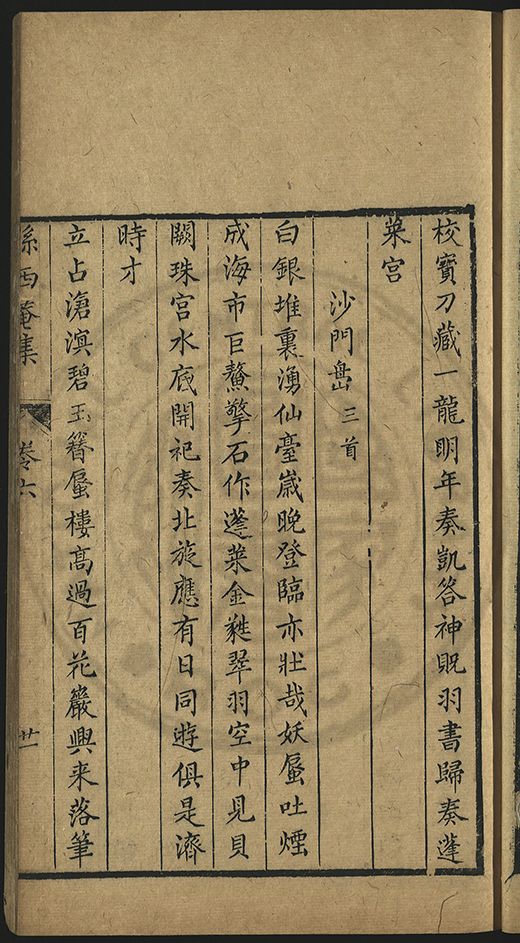 校寳刀藏一龍明年奏凱答神貺羽書歸奏蓬
萊宫
沙門島 三首
白銀堆裏湧仙臺歲晚登臨亦壯哉妖蜃吐煙
成海市巨鼇擎石作蓬萊金蕤翠羽空中見貝
闕珠宫水底開祀奏北旋應有日同遊俱是濟
時才
立占滄溟碧玉簪蜃樓髙過百花巖興来落筆
孫西菴集
卷六
廿一